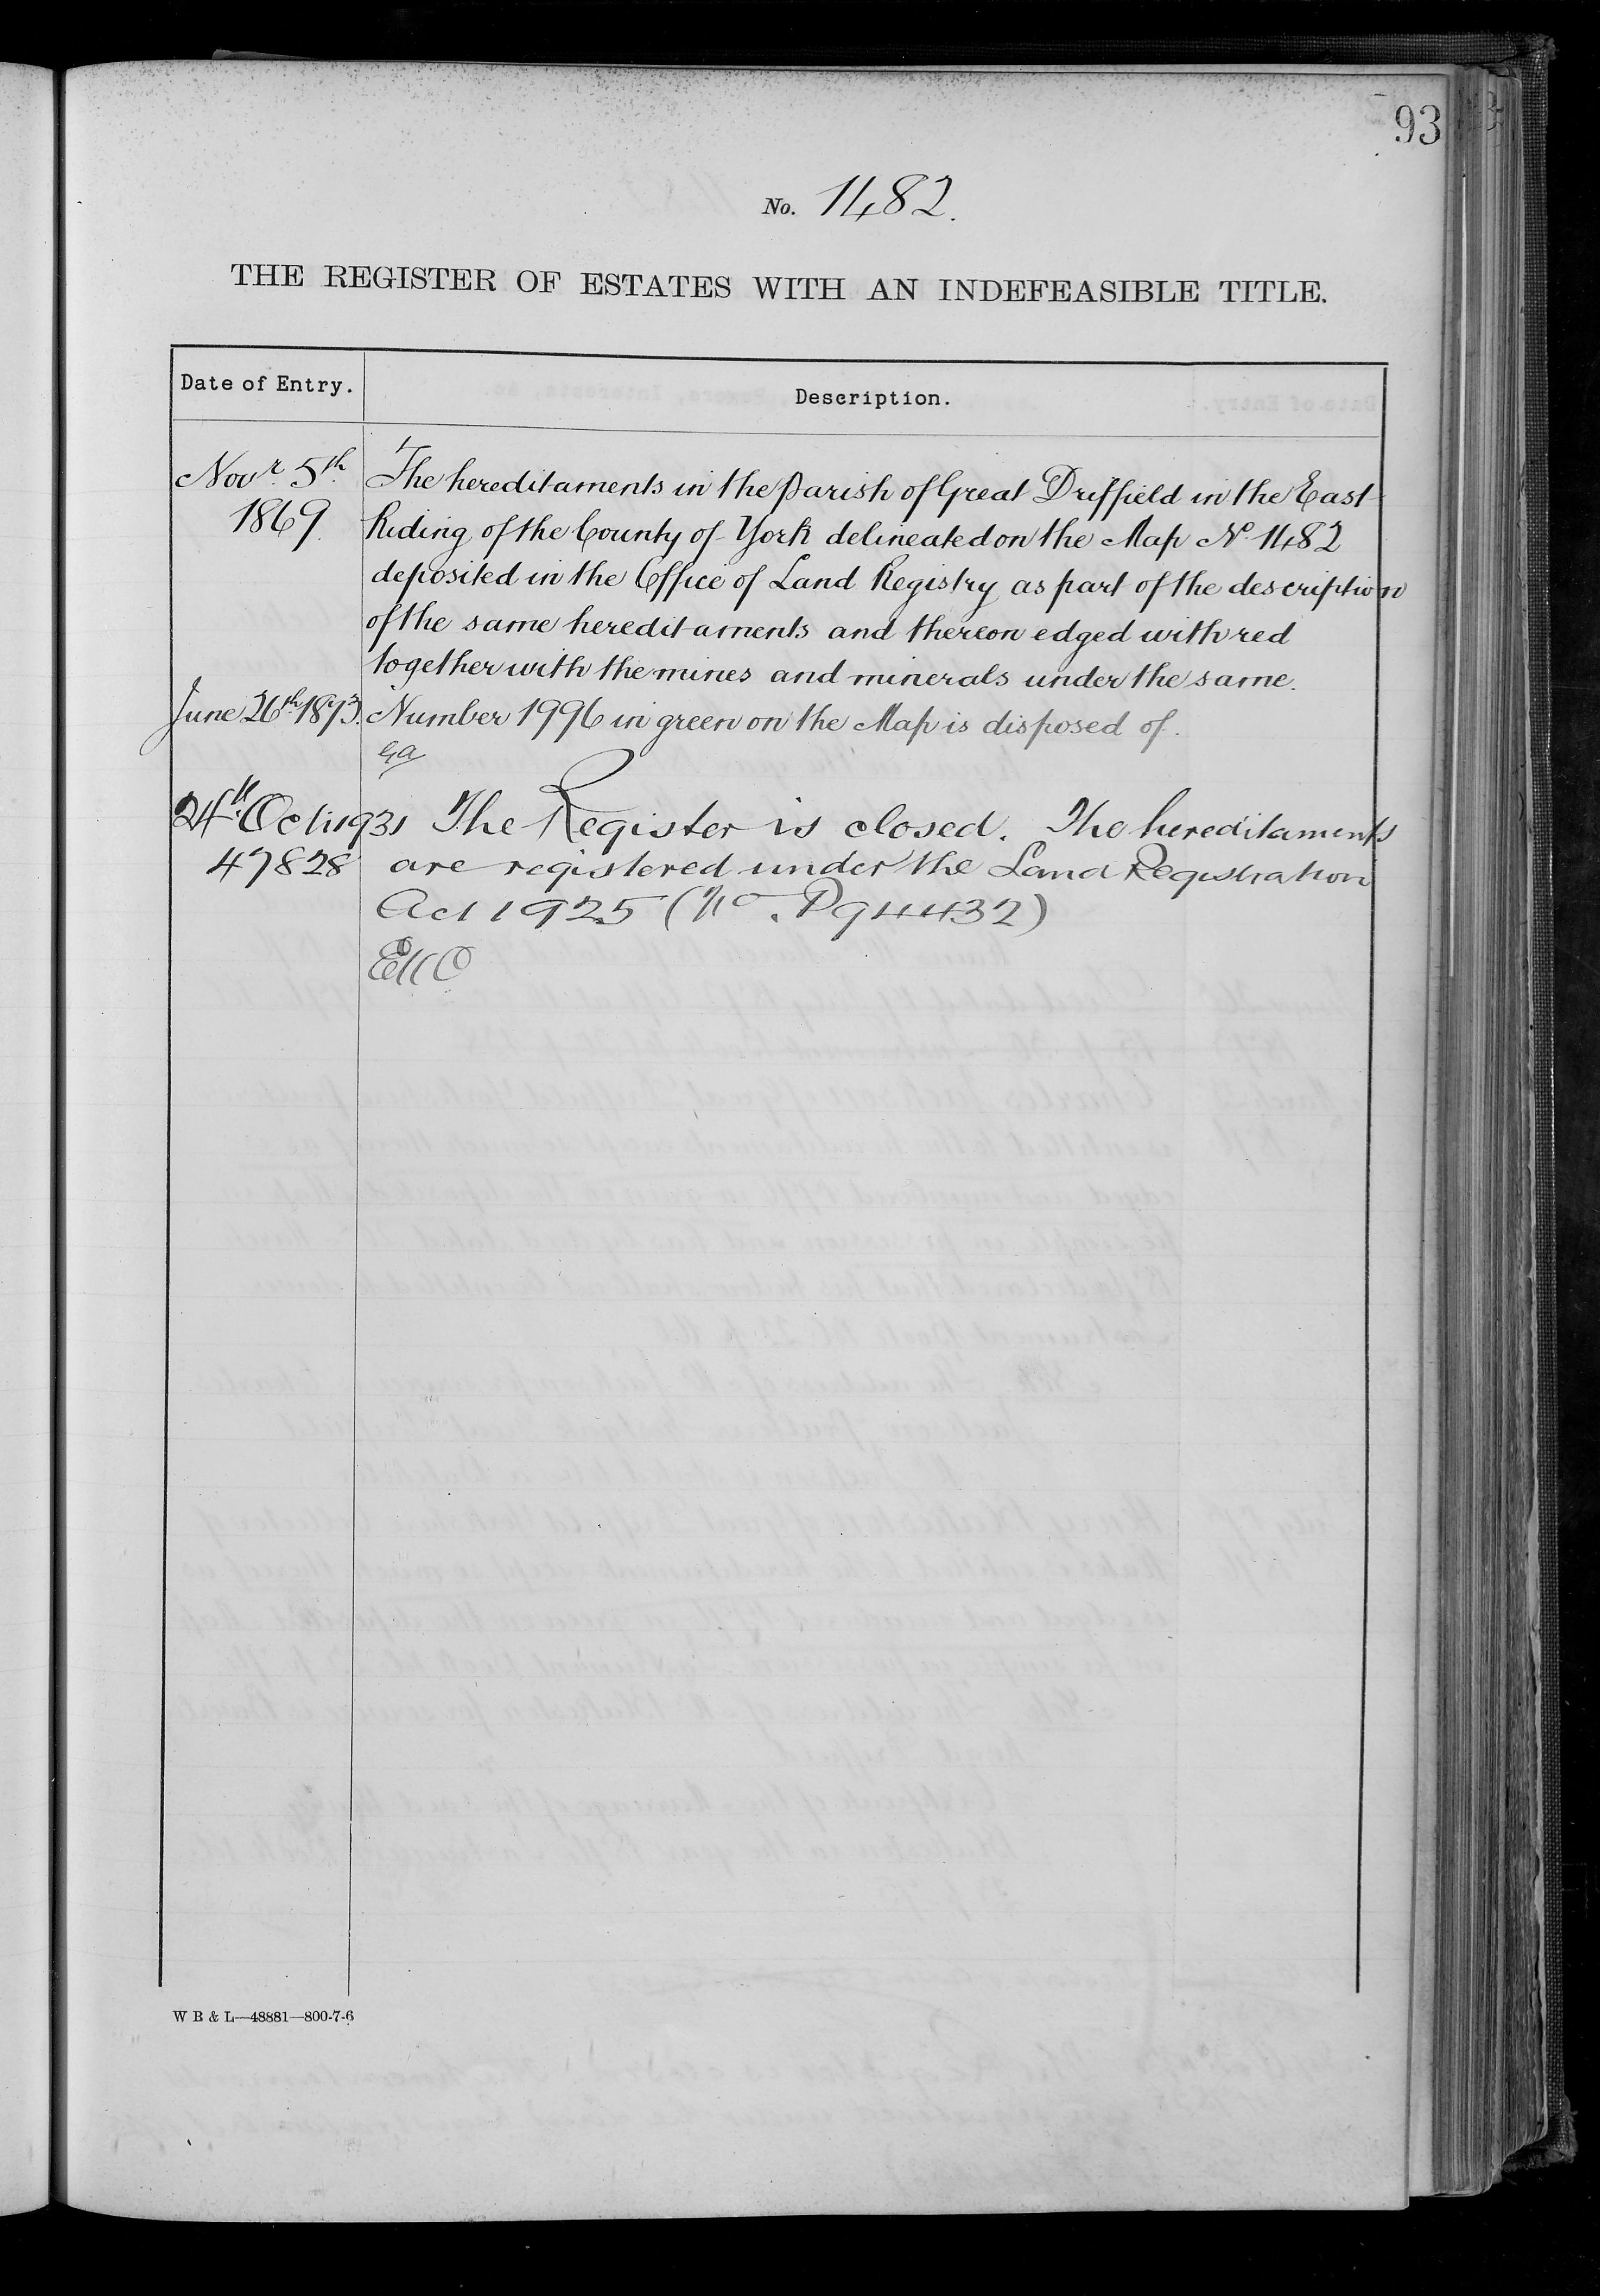 93
No. 1482.
THE REGISTER OF ESTATES WITH AN INDEFEASIBLE TITLE.
Date of Entry.
Description.
Novr. 5th 1869.
The hereditaments in the Parish of Great Driffield in the East
Riding of the County of York delineated on the Map No. 1482
deposited in the Office of Land Registry as part of the description
of the same hereditaments and thereon edged with red
together with the mines and minerals under the same.
June 26th 1873. Number 1996 in green on the Map is disposed of.
24th Oct 1931 The Register is closed. The hereditaments
47828 are registered under the Land Registration
Act 1925 (No. P94432)
W B & L—48881—800-7-6